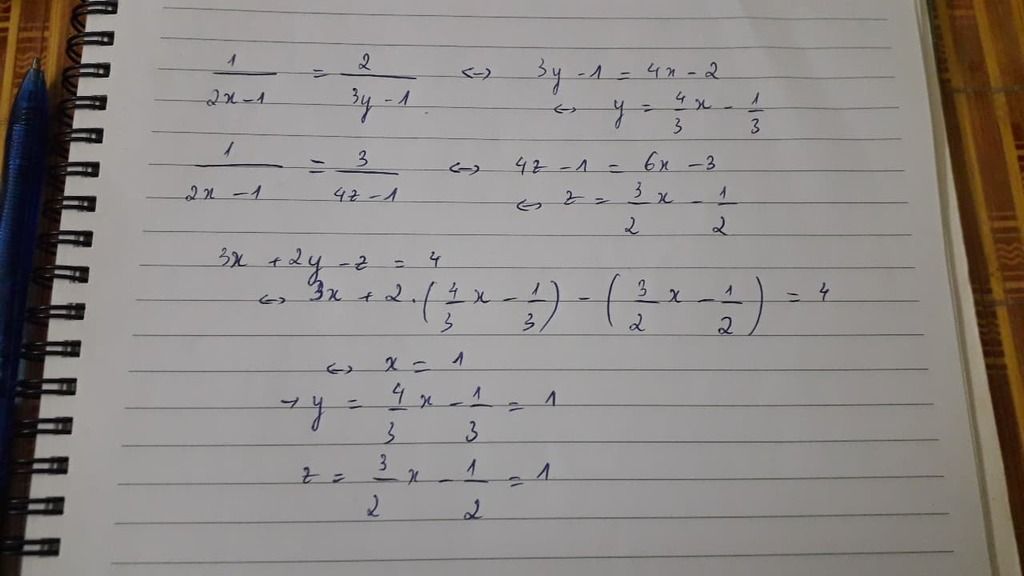 1/(2x-1) = 2/(3y-1) <-> 3y-1 = 4x-2
<-> y = 4/3 x - 1/3
1/(2x-1) = 3/(4z-1) <-> 4z-1 = 6x-3
<-> z = 3/2 x - 1/2
3x + 2y - z = 4
<-> 3x + 2.(4/3 x - 1/3) - (3/2 x - 1/2) = 4
<-> x = 1
→ y = 4/3 x - 1/3 = 1
z = 3/2 x - 1/2 = 1